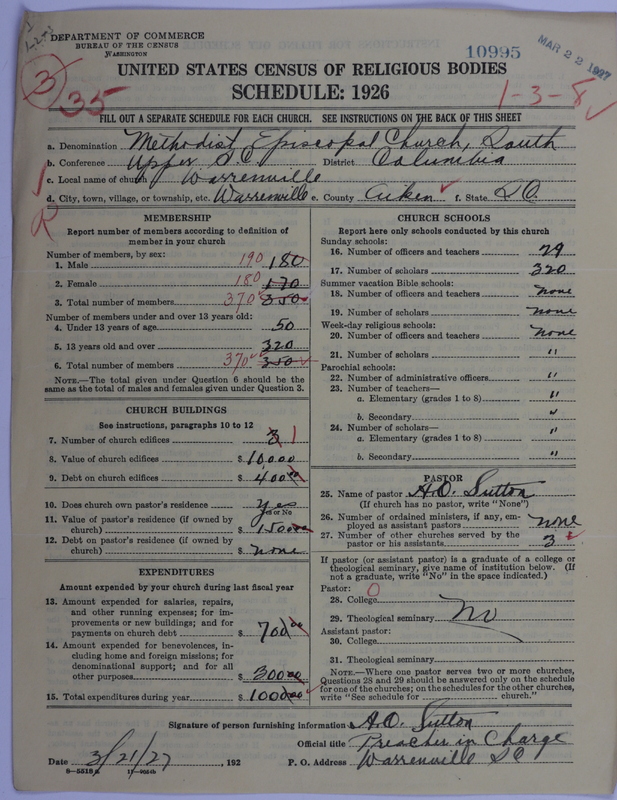 DEPARTMENT OF COMMERCE
BUREAU OF THE CENSUS
WASHINGTON
10995
MAR 22 1927
UNITED STATES CENSUS OF RELIGIOUS BODIES
SCHEDULE: 1926
3
35
1-3-8
FILL OUT A SEPARATE SCHEDULE FOR EACH CHURCH. SEE INSTRUCTIONS ON THE BACK OF THIS SHEET
a. Denomination Methodist Episcopal Church, South
b. Conference Upper S.C. District Columbia
c. Local name of church Warrenville
d. City, town, village, or township, etc. Warrenville e. County Aiken f. State S.C.
R
MEMBERSHIP
Report number of members according to definition of
member in your church
Number of members, by sex:
1. Male 190 180
2. Female 180 170
3. Total number of members 370 350
Number of members under and over 13 years old:
4. Under 13 years of age 50
5. 13 years old and over 320
6. Total number of members 370 350
NOTE.—The total given under Question 6 should be the
same as the total of males and females given under Question 3.
CHURCH BUILDINGS
See instructions, paragraphs 10 to 12
7. Number of church edifices 3 1
8. Value of church edifices $ 10000
9. Debt on church edifices $ 40000
10. Does church own pastor's residence Yes
Yes or No
11. Value of pastor's residence (if owned by
church) $ 150000
12. Debt on pastor's residence (if owned by
church) $ none
EXPENDITURES
Amount expended by your church during last fiscal year
13. Amount expended for salaries, repairs,
and other running expenses; for im-
provements or new buildings; and for
payments on church debt $ 70000
14. Amount expended for benevolences, in-
cluding home and foreign missions; for
denominational support; and for all
other purposes $ 30000
15. Total expenditures during year $ 100000
CHURCH SCHOOLS
Report here only schools conducted by this church
Sunday schools:
16. Number of officers and teachers 29
17. Number of scholars 320
Summer vacation Bible schools:
18. Number of officers and teachers none
19. Number of scholars none
Week-day religious schools:
20. Number of officers and teachers none
21. Number of scholars "
Parochial schools:
22. Number of administrative officers "
23. Number of teachers—
a. Elementary (grades 1 to 8) "
b. Secondary "
24. Number of scholars—
a. Elementary (grades 1 to 8) "
b. Secondary "
PASTOR
25. Name of pastor A.O. Sutton
(If church has no pastor, write "None")
26. Number of ordained ministers, if any, em-
ployed as assistant pastors none
27. Number of other churches served by the
pastor or his assistants 3
If pastor (or assistant pastor) is a graduate of a college or
theological seminary, give name of institution below. (If
not a graduate, write "No" in the space indicated.)
Pastor: 0
28. College
29. Theological seminary No
Assistant pastor:
30. College
31. Theological seminary
NOTE.—Where one pastor serves two or more churches,
Questions 28 and 29 should be answered only on the schedule
for one of the churches; on the schedules for the other churches,
write "See schedule for church."
Signature of person furnishing information A.O. Sutton
Official title Preacher in Charge
Date 3/21/27, 192 P. O. Address Warrenville S.C.